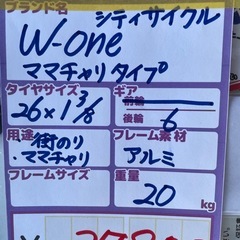 ブランド名
シティサイクル
W-one
ママチャリタイプ
タイヤサイズ
26×1 3/8
ギア
前輪
後輪 6
用途
街のり
・ママチャリ
フレーム素材
アルミ
フレームサイズ
重量
20 kg